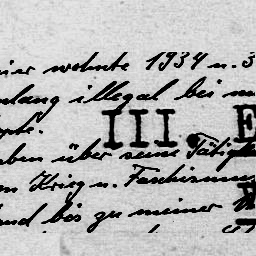 ier wohnte 1934 u. 3
nlang illegal bei m
pte.
III. E
ben über seine Tätigke
m Krieg u. Faschismus
und bis zu meiner